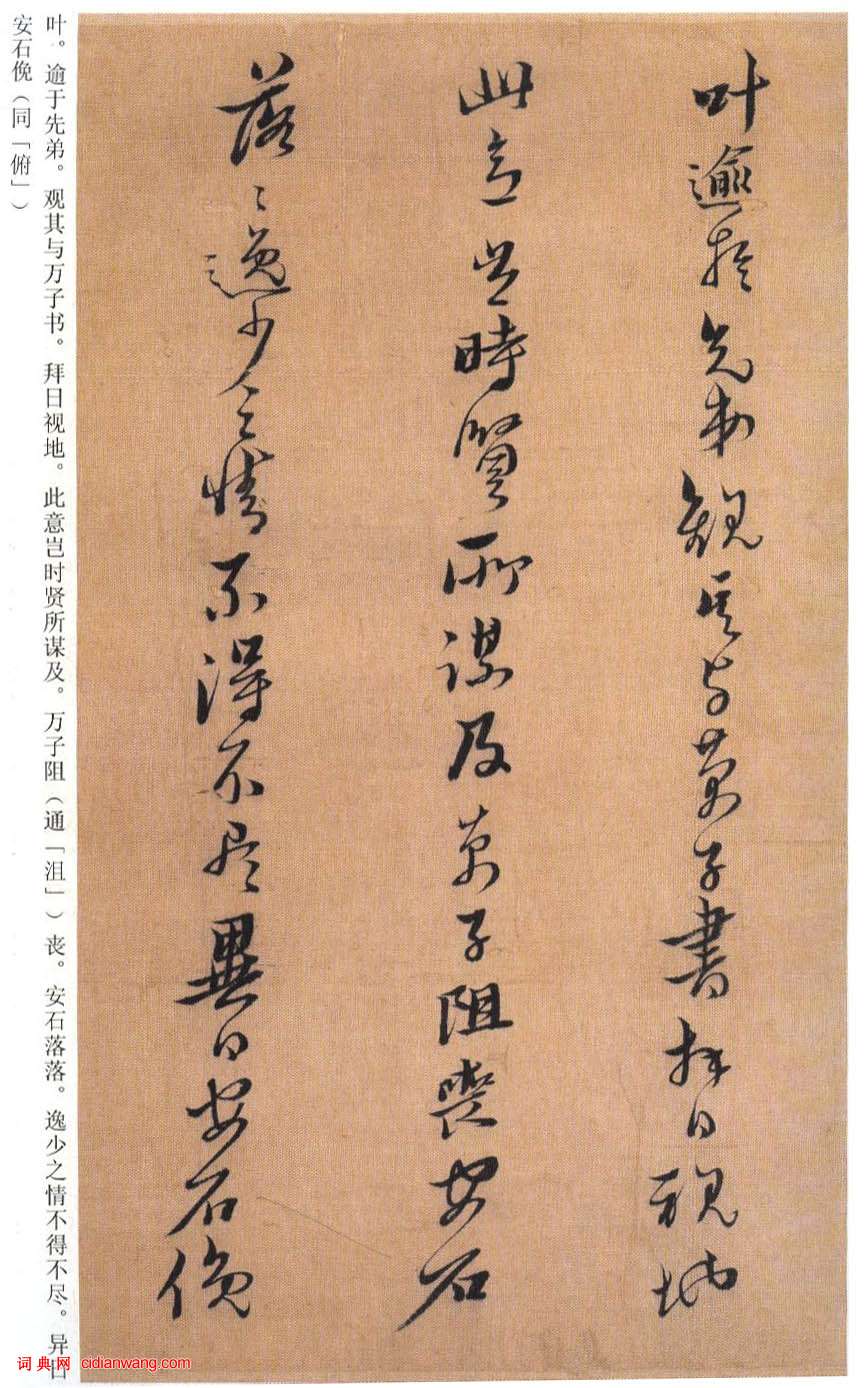 叶逾於先弟觀其与萬子書拜日視地
此意豈時賢所謀及萬子阻喪安石
落〻逸少之情不得不尽異日安石俛
叶。逾于先弟。观其与万子书。拜日视地。此意岂时贤所谋及。万子阻（通「沮」）丧。安石落落。逸少之情不得不尽。异日
安石俛（同「俯」）
词典网 cidianwang.com